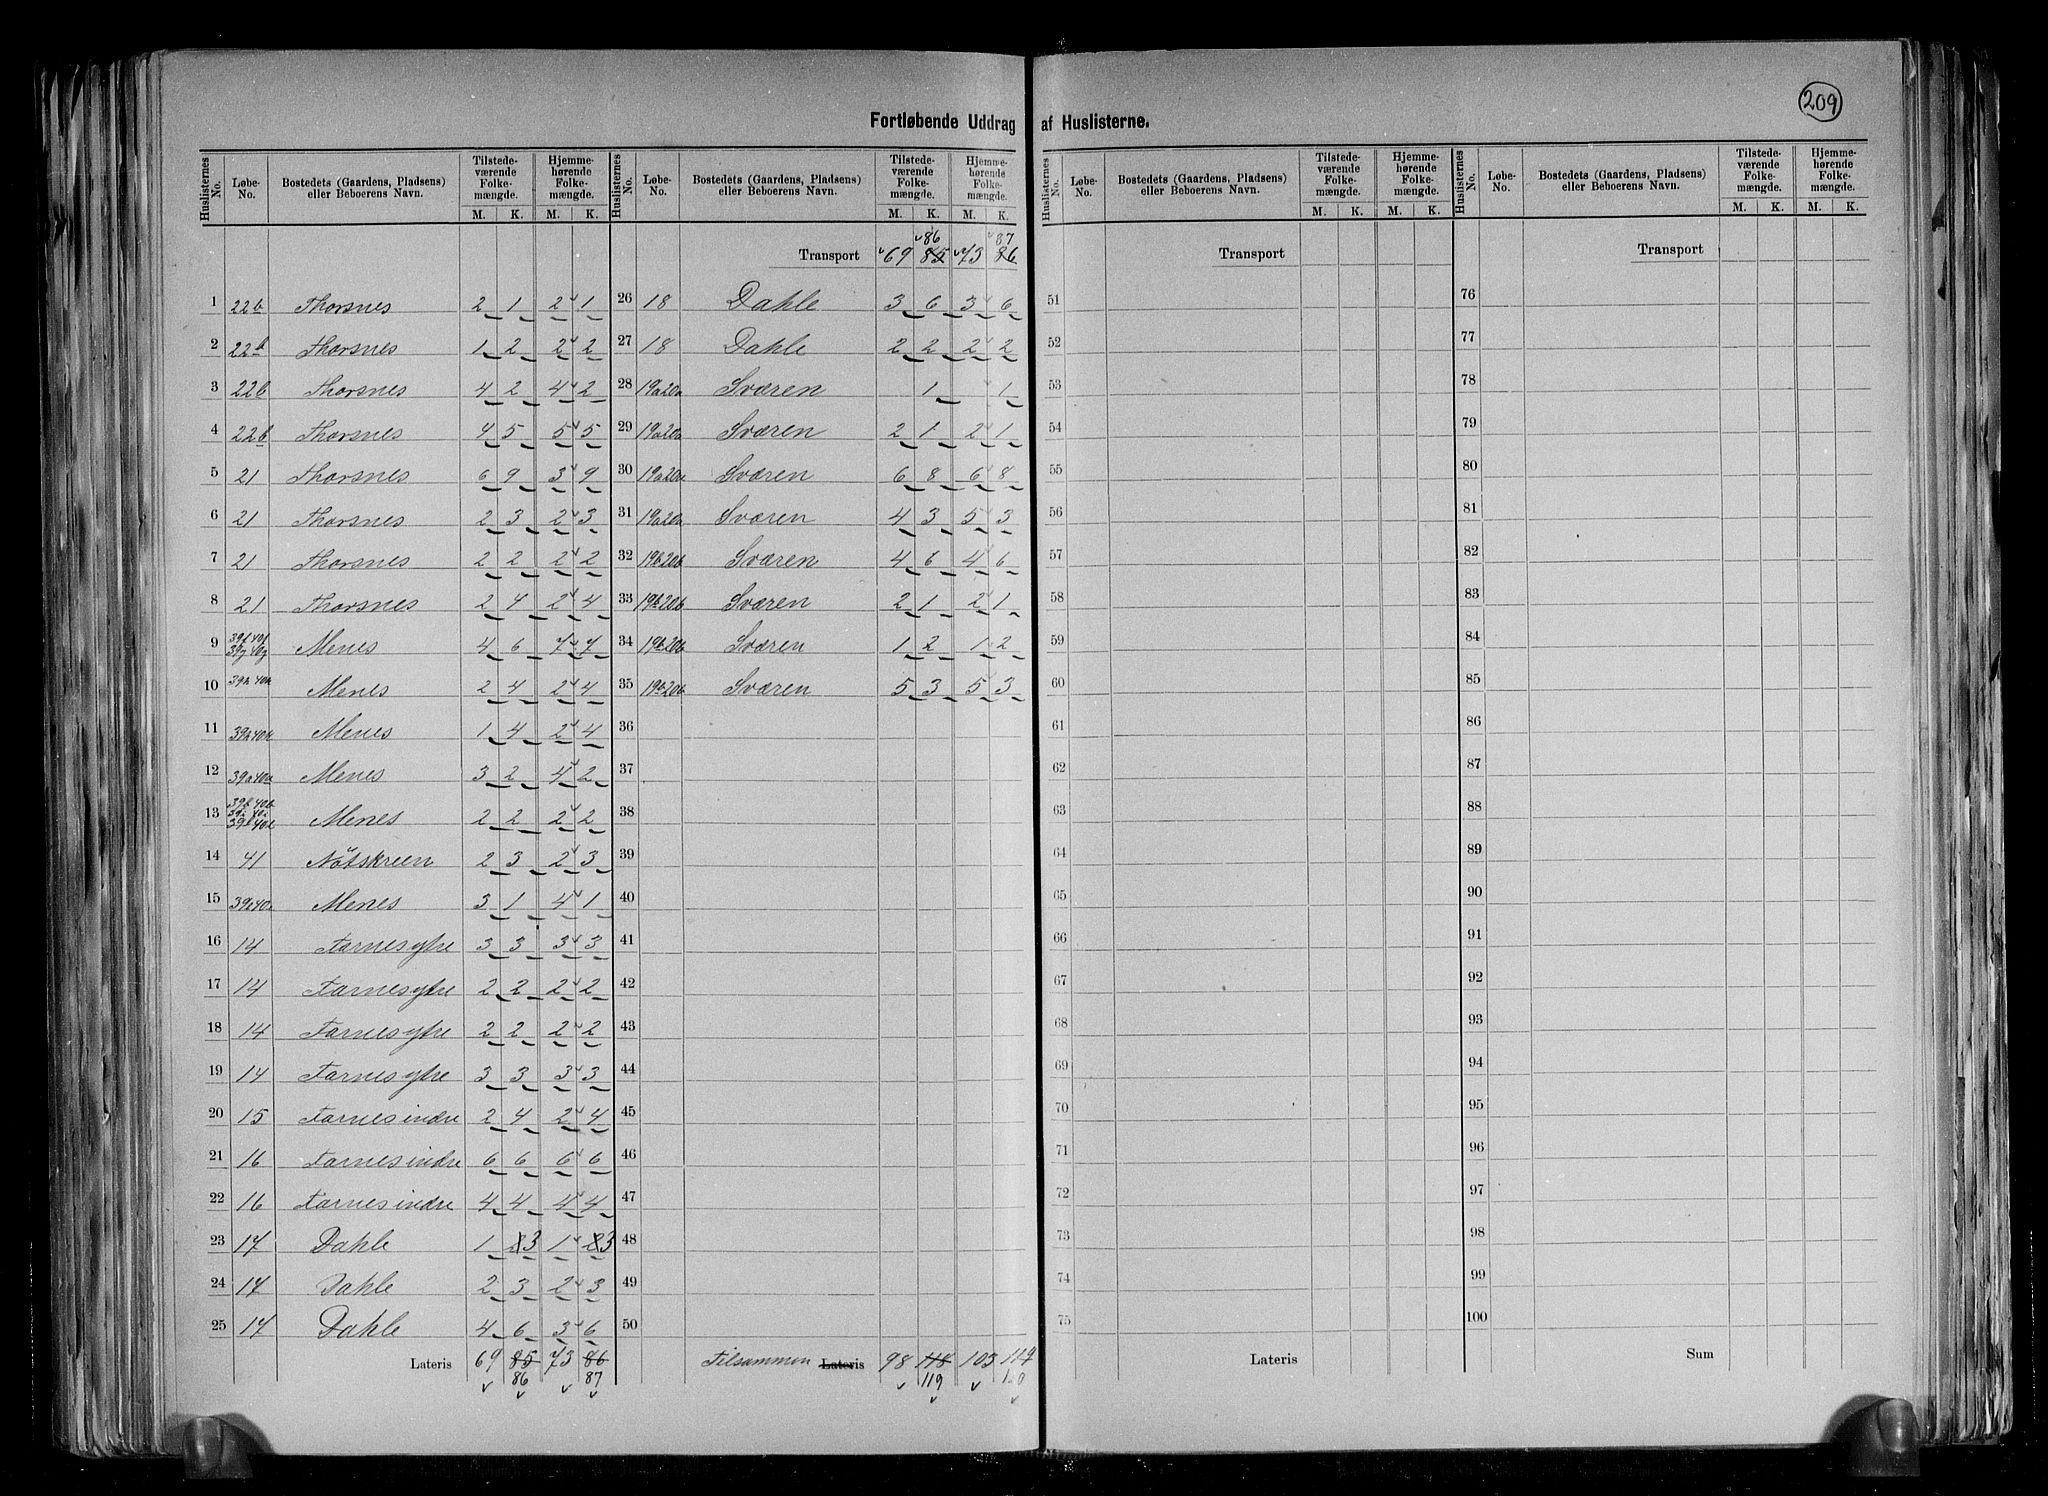 209
Fortløbende Uddrag af Huslisterne.
Huslisternes No. | Løbe-No. | Bostedets (Gaardens, Pladsens) eller Beboerens Navn. | Tilstedeværende Folkemængde. M. K. | Hjemmehørende Folkemængde. M. K.
1 22b Thorsnes 2 1 2 1
2 22b Thorsnes 1 2 2 2
3 22b Thorsnes 4 2 4 2
4 22b Thorsnes 4 5 5 5
5 21 Thorsnes 6 9 3 9
6 21 Thorsnes 2 3 2 3
7 21 Thorsnes 2 2 2 2
8 21 Thorsnes 2 4 2 4
9 39f 40f 39g 40g Menes 4 6 7 7
10 39h 40h Menes 2 4 2 4
11 39h 40h Menes 1 4 2 4
12 39a 40a Menes 3 2 4 2
13 39b 40b Menes 2 2 2 2
14 41 Nötskreen 2 3 2 3
15 Menes 3 1 4 1
16 14 Farnes ytre 3 3 3 3
17 14 Farnes ytre 2 2 2 2
18 14 Farnes ytre 2 2 2 2
19 14 Farnes ytre 3 3 3 3
20 15 Farnes indre 2 4 2 4
21 16 Farnes indre 6 6 6 6
22 16 Farnes indre 4 4 4 4
23 17 Dahle 1 3 1 3
24 17 Dahle 2 3 2 3
25 17 Dahle 4 6 3 6
Lateris 69 85 73 86
86 87
Huslisternes No. | Løbe-No. | Bostedets (Gaardens, Pladsens) eller Beboerens Navn. | Tilstedeværende Folkemængde. M. K. | Hjemmehørende Folkemængde. M. K.
86 87
Transport 69 85 73 86
26 18 Dahle 3 6 3 6
27 18 Dahle 2 2 2 2
28 19a20a Sværen 1 1
29 19a20a Sværen 2 1 2 1
30 19a20a Sværen 6 8 6 8
31 19a20a Sværen 4 3 5 3
32 19b20b Sværen 4 6 4 6
33 19b20b Sværen 2 1 2 1
34 19b20b Sværen 1 2 1 2
35 19b20b Sværen 5 3 5 3
36
37
38
39
40
41
42
43
44
45
46
47
48
49
50
Tilsammen Lateris 98 118 103 119
119 120
Huslisternes No. | Løbe-No. | Bostedets (Gaardens, Pladsens) eller Beboerens Navn. | Tilstedeværende Folkemængde. M. K. | Hjemmehørende Folkemængde. M. K.
Transport
51
52
53
54
55
56
57
58
59
60
61
62
63
64
65
66
67
68
69
70
71
72
73
74
75
Lateris
Huslisternes No. | Løbe-No. | Bostedets (Gaardens, Pladsens) eller Beboerens Navn. | Tilstedeværende Folkemængde. M. K. | Hjemmehørende Folkemængde. M. K.
Transport
76
77
78
79
80
81
82
83
84
85
86
87
88
89
90
91
92
93
94
95
96
97
98
99
100
Sum